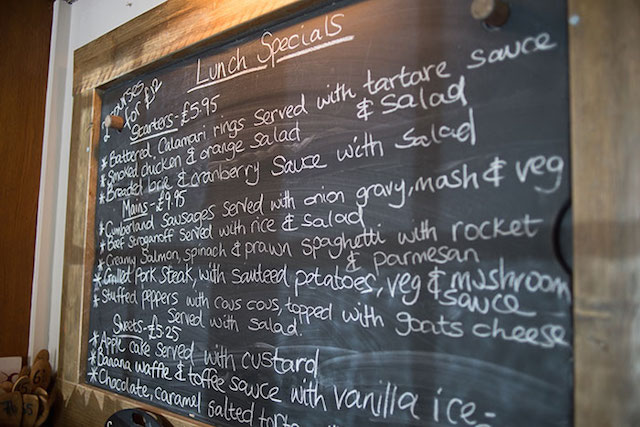 Lunch Specials
courses
for £12
Starters - £5.95
* Battered Calamari rings served with tartare sauce
& Salad
* Smoked chicken & orange salad
* Breaded brie & cranberry Sauce with Salad
Mains - £9.95
* Cumberland Sausages served with onion gravy, mash & veg
* Beef Stroganoff served with rice & Salad
* Creamy Salmon, spinach & prawn spaghetti with rocket
& parmesan
* Grilled Pork Steak, with sauteed potatoes, veg & mushroom
sauce
* Stuffed peppers with cous cous, topped with goats cheese
served with salad.
Sweets - £5.25
* Apple cake served with custard
* Banana waffle & toffee sauce with vanilla ice-
* Chocolate, caramel salted